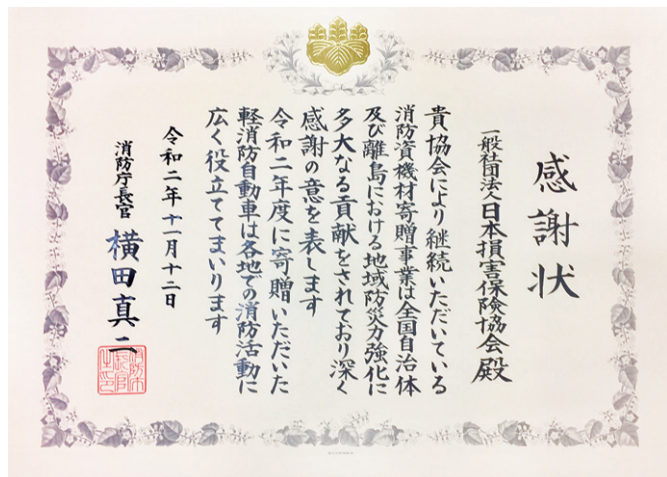 感謝状
一般社団法人日本損害保険協会殿
貴協会により継続いただいている
消防資機材寄贈事業は全国自治体
及び離島における地域防災力強化に
多大なる貢献をされており深く
感謝の意を表します
令和二年度に寄贈いただいた
軽消防自動車は各地での消防活動に
広く役立ててまいります
令和二年十一月十二日
消防庁長官 横田真二